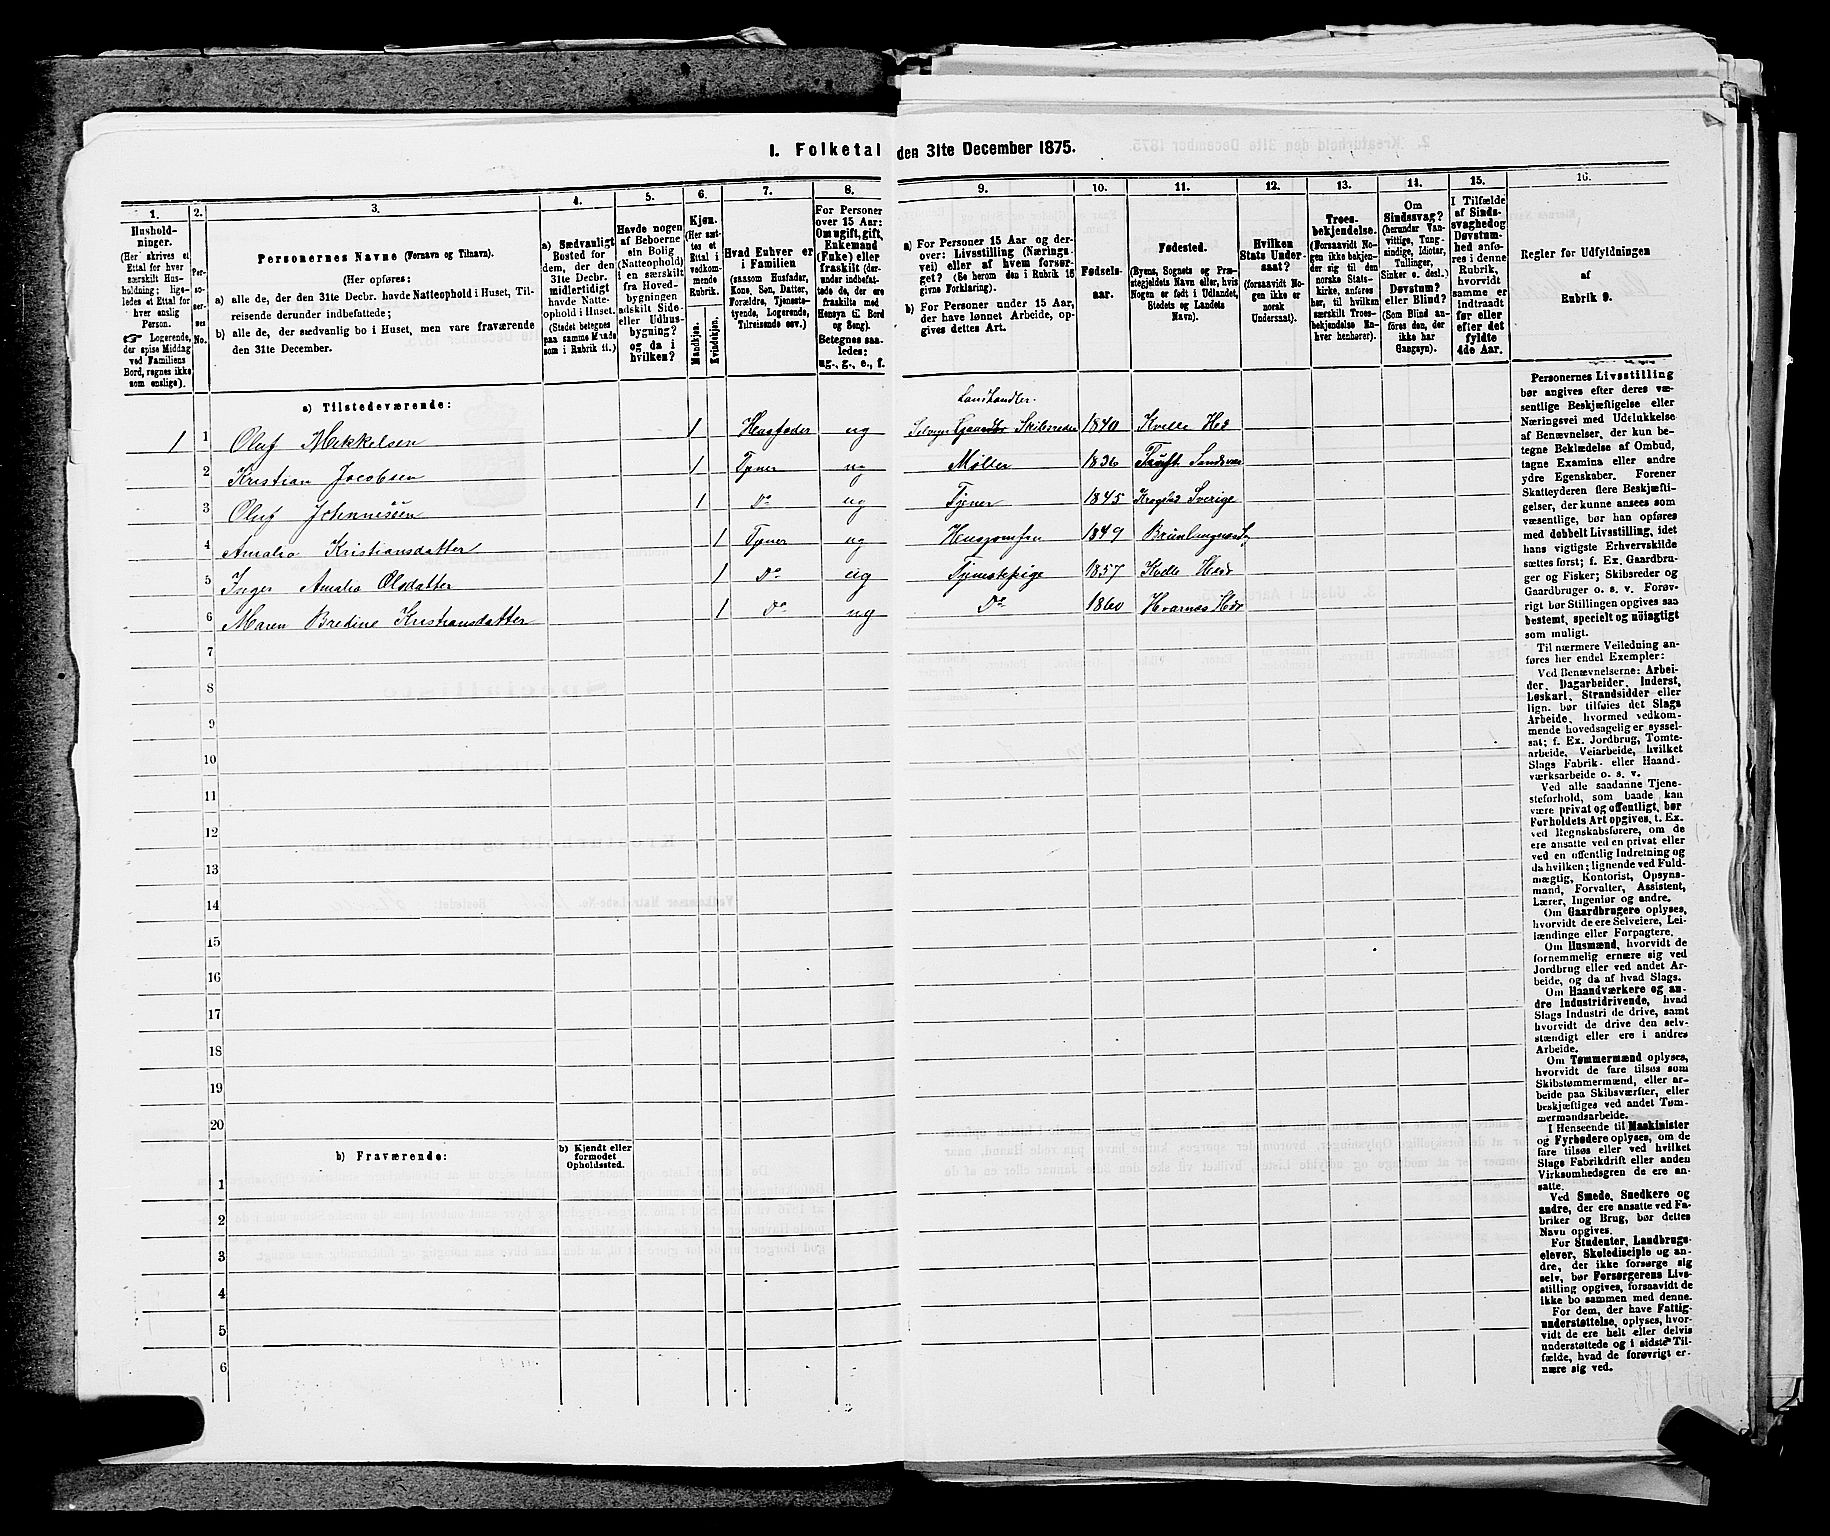 I. Folketal den 31te December 1875.
1.
Husholdninger.
(Her skrives et Ettal for hver særskilt Husholdning; ligeledes et Ettal for hver enslig Person.
☞ Logerende, der spise Middag ved Familiens Bord, regnes ikke som enslige).
2.
Personernes No.
3.
Personernes Navne (Fornavn og Tilnavn).
(Her opføres:
a) alle de, der den 31te Decbr. havde Natteophold i Huset, Tilreisende derunder indbefattede;
b) alle de, der sædvanlig bo i Huset, men vare fraværende den 31te December.
4.
a) Sædvanligt Bosted for dem, der den 31te Decbr. midlertidigt havde Natteophold i Huset.
(Stedet betegnes paa samme Maade som i Rubrik 11.)
5.
Havde nogen af Beboerne sin Bolig (Natteophold) i en særskilt fra Hovedbygningen adskilt Side- eller Udhusbygning? og da i hvilken?
6.
Kjøn.
(Her sættes et Ettal i vedkommende Rubrik.
Mandkjøn.
Kvindekjøn.
7.
Hvad Enhver er i Familien
(saasom Husfader, Kone, Søn, Datter, Forældre, Tjenestetyende, Logerende, Tilreisende osv.)
8.
For Personer over 15 Aar: Om ugift, gift, Enkemand (Enke) eller fraskilt (derunder indbefattede de, der ere fraskilte med Hensyn til Bord og Seng).
Betegnes saaledes: ug., g., e., f.
9.
a) For Personer 15 Aar og derover: Livsstilling (Næringsvei) eller af hvem forsørget? (Se herom den i Rubrik 16 givne Forklaring).
b) For Personer under 15 Aar, der have lønnet Arbeide, opgives dettes Art.
10.
Fødselsaar.
11.
Fødested.
(Byens, Sognets og Præstegjeldets Navn eller, hvis Nogen er født i Udlandet, Stedets og Landets Navn).
12.
Hvilken Stats Undersaat?
(forsaavidt Nogen ikke er norsk Undersaat).
13.
Troesbekjendelse.
(Forsaavidt Nogen ikke bekjender sig til den norske Statskirke, anføres her, til hvilken særskilt Troesbekjendelse Enhver henhører).
14.
Om Sindssvag? (herunder Vanvittige, Tungsindige, Idioter, Tullinger, Sinker o. desl.) Døvstum? eller Blind? (Som Blind anføres den, der ikke har Gangsyn).
15.
I Tilfælde af Sindssvaghed og Døvstumhed anføres i denne Rubrik, hvorvidt samme er indtraadt før eller efter det fyldte 4de Aar.
16.
Regler for Udfyldningen
af
Rubrik 9.
a) Tilstedeværende:
Landhandler.
1 1 Oluf Mikkelsen 1 Husfader ug Selveier Gaardbr Skibsreder 1840 Kville Hed
2 Kristian Jacobsen 1 Tjener ug Møller 1836 Tuft Sandsvær
3 Oluf Johannesen 1 Do ug Tjener 1845 Krogstad Sverige
4 Amalia Kristiansdatter 1 Tjener ug Husjomfru 1849
5 Inger Amalia Olsdatter 1 Do ug Tjenestepige 1857 Kville Hedr
6 Maren Bredine Kristiansdatter 1 Do ug Do 1860 Hvarnes Hedr
7
8
9
10
11
12
13
14
15
16
17
18
19
20
b) Fraværende:
b) Kjendt eller formodet Opholdssted.
1
2
3
4
5
6
Personernes Livsstilling
bør angives efter deres væsentlige
Beskjæftigelse eller
Næringsvei med Udelukkelse
af Benævnelser, der kun betegne
Beklædelse af Ombud,
tagne Examina eller andre
ydre Egenskaber. Forener
Skatteyderen flere Beskjæftigelser,
der kunne ansees som
væsentlige, bør han opføres
med dobbelt Livsstilling, idet
hans vigtigste Erhvervskilde
sættes først; f. Ex. Gaardbruger
og Fisker; Skibsreder og
Gaardbruger o. s. v. Forøvrigt
bør Stillingen opgives saa
bestemt, specielt og nöiagtigt
som muligt.
Til nærmere Veiledning anføres
her endel Exempler:
Ved Benævnelserne: Arbeider,
Dagarbeider, Inderst,
Løskarl, Strandsidder eller
lign. bør tilføies det Slags
Arbeide, hvormed vedkommende
hovedsagelig er sysselsat;
f. Ex. Jordbrug, Tomtearbeide,
Veiarbeide, hvilket
Slags Fabrik- eller Haandværksarbeide
o. s. v.
Ved alle saadanne Tjenesteforhold,
som baade kan
være privat og offentligt, bør
Forholdets Art opgives, t. Ex.
ved Regnskabsførere, om de
ere ansatte ved en privat eller
ved en offentlig Indretning og
da hvilken; lignende ved Fuldmægtig,
Kontorist, Opsynsmand,
Forvalter, Assistent,
Lærer, Ingeniør og andre.
Om Gaardbrugere oplyses,
hvorvidt de ere Selveiere, Leilændinge
eller Forpagtere.
Om Husmænd, hvorvidt de
fornemmelig ernære sig ved
Jordbrug eller ved andet Arbeide,
og da af hvad Slags.
Om Haandværkere og andre
Industridrivende, hvad
Slags Industri de drive, samt
hvorvidt de drive den selvstændigt
eller ere i andres
Arbeide.
Om Tømmermænd oplyses,
hvorvidt de fare tilsøs som
Skibstømmermænd, eller arbeide
paa Skibsværfter, eller
beskjæftiges ved andet Tømmermandsarbeide.
I Henseende til Maskinister
og Fyrbødere oplyses, om de
fare tilsøs eller ved hvilket
Slags Fabrikdrift eller anden
Virksomhedsgren de ere ansatte.
Ved Smede, Snedkere og
andre, der ere ansatte ved Fabriker
og Brug, bør dettes
Navn opgives.
For Studenter, Landbrugselever,
Skoledisciple og andre,
der ikke forsørge sig
selv, bør Forsørgerens Livsstilling
opgives, forsaavidt de
ikke bo sammen med denne.
For dem, der have Fattigunderstøttelse,
oplyses, hvorvidt
de ere helt eller delvis
understøttede og i sidste Tilfælde,
hvad de forøvrigt ernære
sig ved.